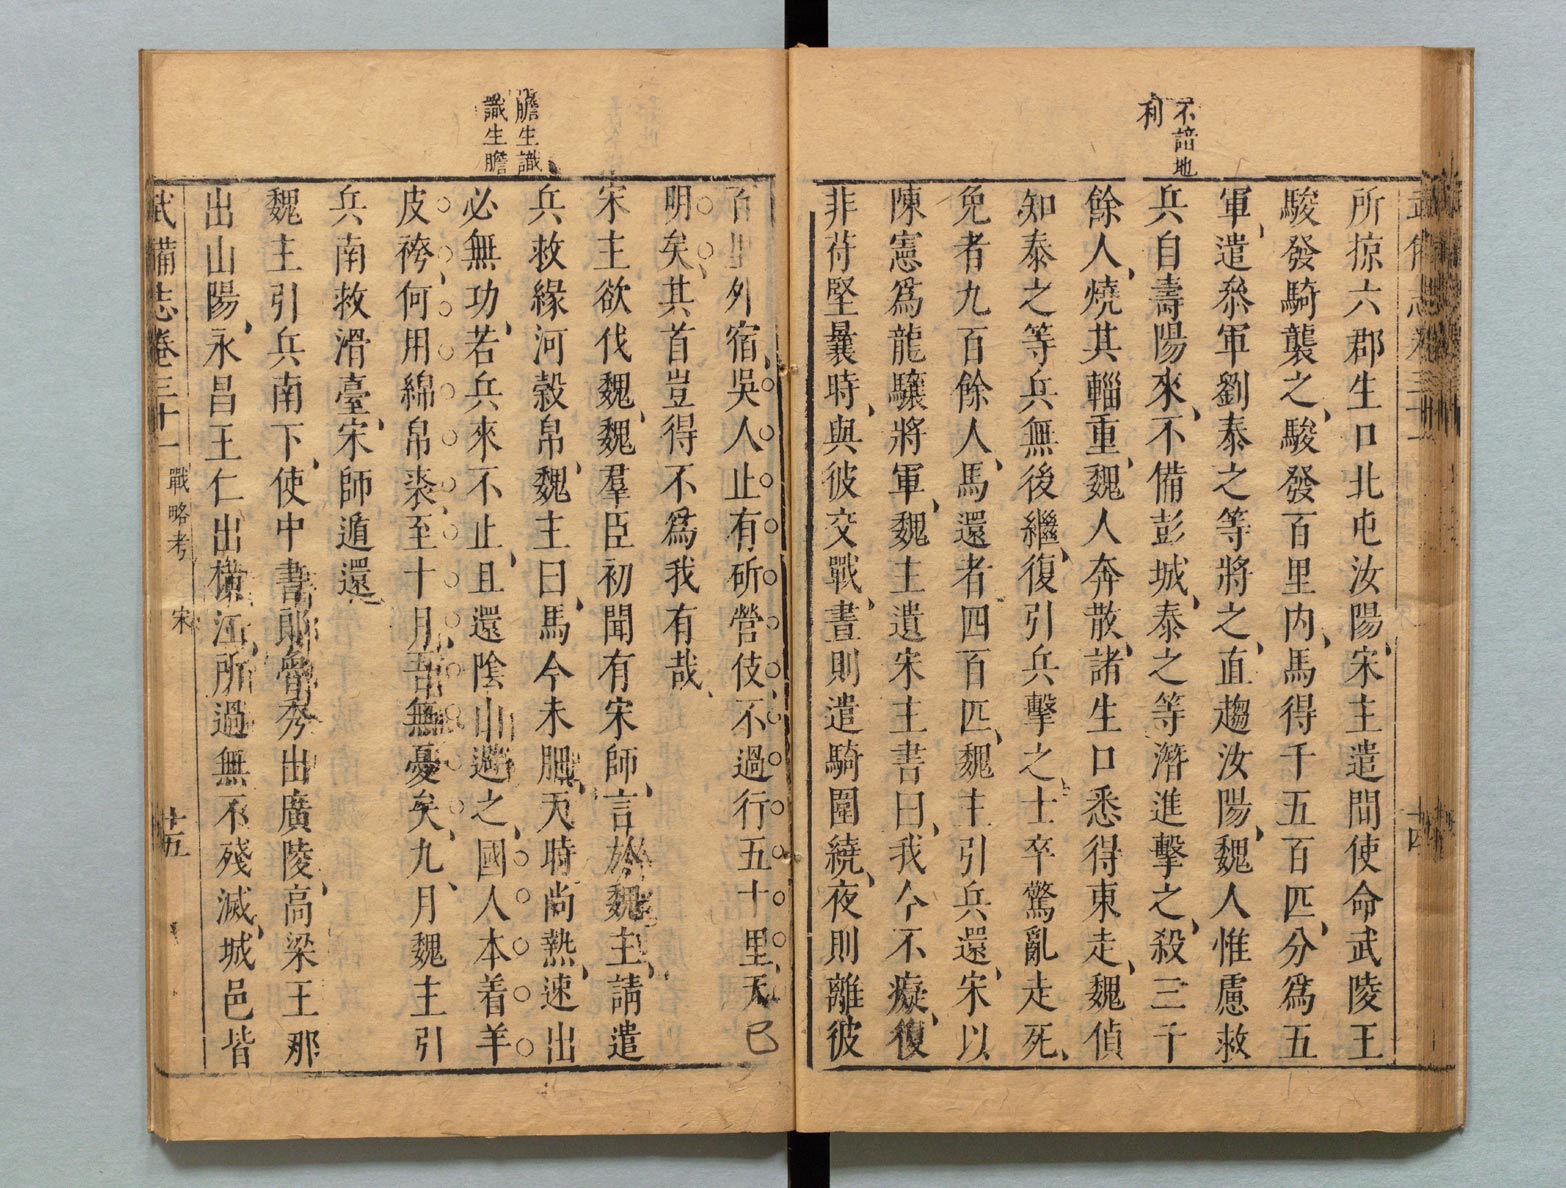 不諳地
利
所掠六郡生口北屯汝陽、宋主遣間使命武陵王
駿發騎襲之、駿發百里內、馬得千五百匹、分爲五
軍、遣叅軍劉泰之等將之、直趨汝陽、魏人惟慮救
兵自壽陽來、不備彭城、泰之等潛進擊之、殺三千
餘人、燒其輜重、魏人奔散、諸生口悉得東走、魏偵
知泰之等兵無後繼、復引兵擊之、士卒驚亂走死、
免者九百餘人、馬還者四百匹、魏主引兵還、宋以
陳憲爲龍驤將軍、魏主遺宋主書曰、我今不癡、復
非苻堅曩時、與彼交戰、晝則遣騎圍繞、夜則離彼
膽生識
識生膽
百里外宿、吳人止有斫營伎、不過行五十里、天已
明矣、其首豈得不爲我有哉、
宋主欲伐魏、魏羣臣初聞有宋師、言於魏主、請遣
兵救緣河穀帛、魏主曰、馬今未肥、天時尚熱、速出
必無功、若兵來不止、且還陰山避之、國人本着羊
皮袴、何用綿帛哉、至十月、吾無憂矣、九月魏主引
兵南救滑臺、宋師遁還、
魏主引兵南下、使中書郎魯秀出廣陵、高梁王那
出山陽、永昌王仁出橫江、所過無不殘滅、城邑皆
武備志卷三十一 戰略考 宋 十五